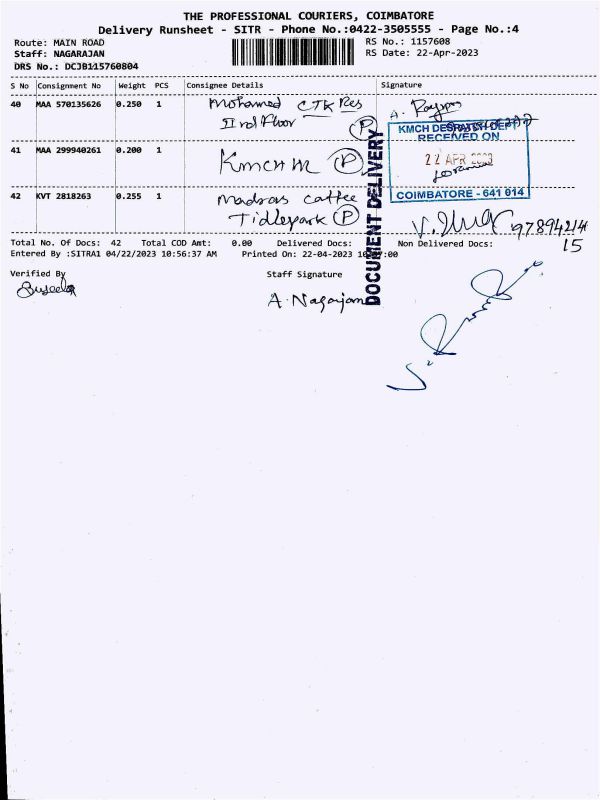 THE PROFESSIONAL COURIERS, COIMBATORE
Delivery Runsheet - SITR - Phone No.:0422-3505555 - Page No.:4
Route: MAIN ROAD
Staff: NAGARAJAN
DRS No.: DCJB115760804
RS No.: 1157608
RS Date: 22-Apr-2023
S No Consignment No Weight PCS Consignee Details Signature
40 MAA 570135626 0.250 1 Mohamed CTK Res
II rd Floor (P)
A.
KMCH DESPATCH DEPT
RECEIVED ON
41 MAA 299940261 0.200 1 KMCH M (P)
22 APR 2023
COIMBATORE - 641 014
42 KVT 2818263 0.255 1 Madras caffee
Tidlepark (P)
DOCUMENT DELIVERY
15
Total No. Of Docs: 42 Total COD Amt: 0.00 Delivered Docs: Non Delivered Docs:
Entered By :SITRA1 04/22/2023 10:56:37 AM Printed On: 22-04-2023
Verified By
Staff Signature
A. Nagarjan